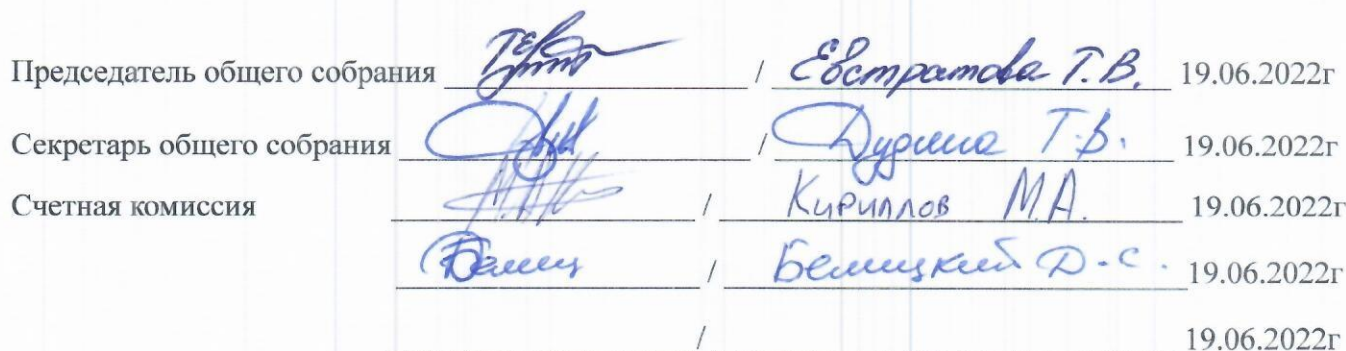 Председатель общего собрания / Евстратова Т.В. 19.06.2022г
Секретарь общего собрания / Дудина Т.В. 19.06.2022г
Счетная комиссия / Кириллов М.А. 19.06.2022г
/ Белицкий Д.С. 19.06.2022г
/ 19.06.2022г